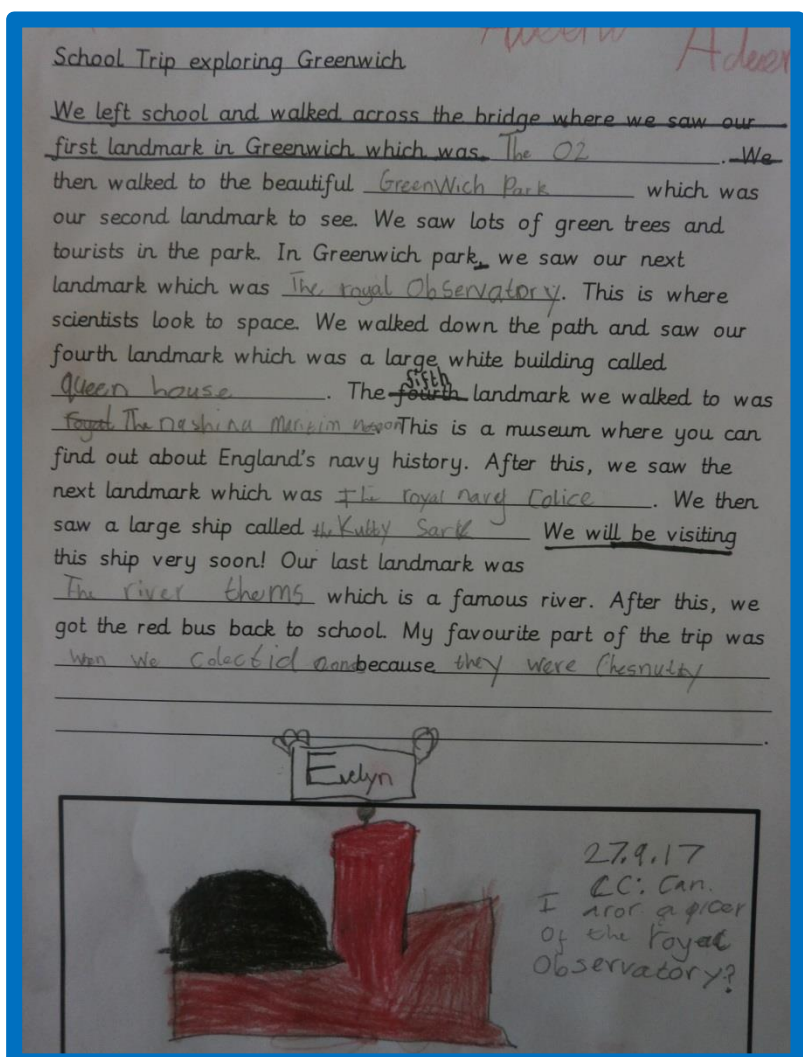 School Trip exploring Greenwich
We left school and walked across the bridge where we saw our
first landmark in Greenwich which was The O2. We
then walked to the beautiful GreenWich Park which was
our second landmark to see. We saw lots of green trees and
tourists in the park. In Greenwich park, we saw our next
landmark which was The royal Observatory. This is where
scientists look to space. We walked down the path and saw our
fourth landmark which was a large white building called
queen house. The fourth fifth landmark we walked to was
royal The nashina Maritim This is a museum where you can
find out about England's navy history. After this, we saw the
next landmark which was the royal navy Colice. We then
saw a large ship called the Kutty Sark We will be visiting
this ship very soon! Our last landmark was
The river thems which is a famous river. After this, we
got the red bus back to school. My favourite part of the trip was
wen we colectid because they were Chesnutty
Evelyn
27.9.17
LC: Can
I a
of the royal
Observatory?